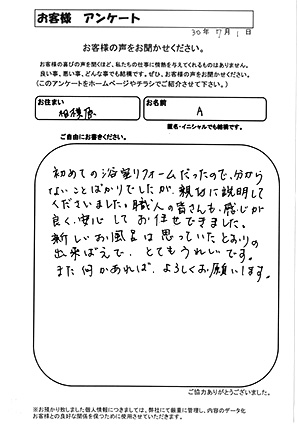 お客様 アンケート
30年 7月 1日
お客様の声をお聞かせください。
お客様の喜びの声を聞くほど、私たちの仕事に情熱を与えてくれるものはありません。
良い事、悪い事、どんな事でも結構です。ぜひ、お客様の声をお聞かせください。
(このアンケートをホームページやチラシでご紹介させて下さい。)
お住まい 相模原
お名前 A
匿名・イニシャルでも結構です。
ご自由にお書きください。
初めての浴室リフォームだったので、分から
ないことばかりでしたが、親切に説明して
くださいました。職人の皆さんも、感じが
良く、安心してお任せできました。
新しいお風呂は思っていたとおりの
出来ばえで、とてもうれしいです。
また何かあれば、よろしくお願いします。
ご協力ありがとうございました。
※お預かり致しました個人情報につきましては、弊社にて厳重に管理し、内容のデータ化
お客様との良好な関係を保つために使用させていただきます。